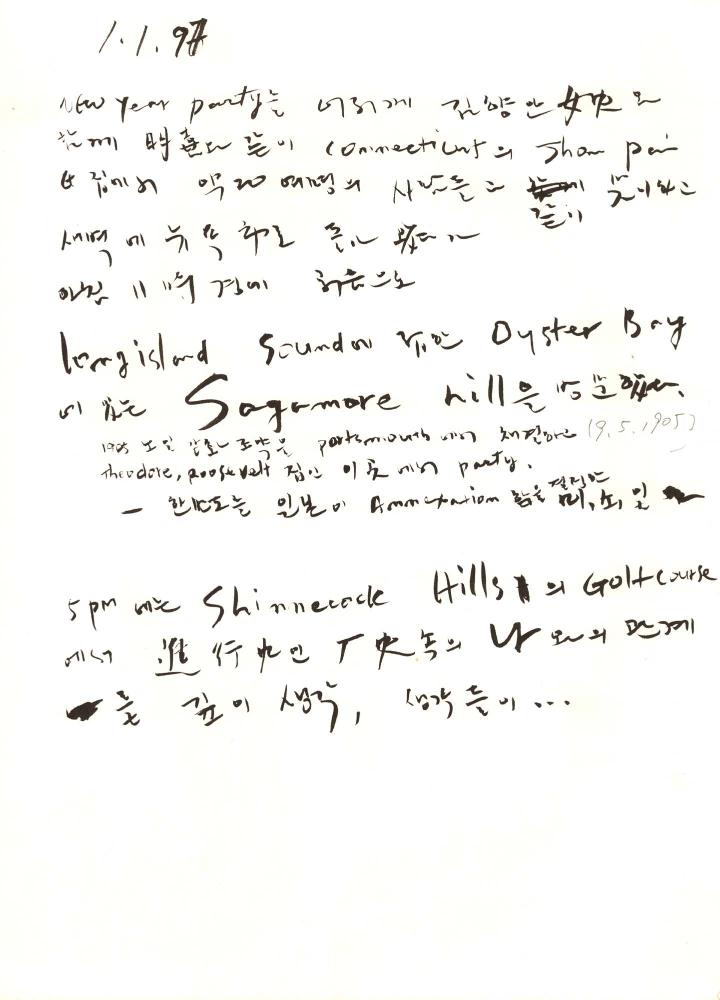 1.1.97
New Year party를 김향안 女史와
함께 같이 Connecticut의 Jhon pai
집에서 약 20여명의 사람들과 같이 맞이하고
새벽에 뉴욕市로 돌아 왔다가
아침 11時경에 처음으로
long island Sound에 Oyster Bay
에 있는 Sagamore hill을 방문했다.
1905 조약을 portsmouth에서 체결하고 (9.5.1905)
theodore, roosevelt 집인 이곳에서 party.
— 한반도는 일본이 Annexation 함을 결정한 미, 소, 일
5 pm에는 Shinnecock Hills의 Golf course
에서 進行中인 歷史속의 나와의 관계
를 깊이 생각, 생각들이 ...